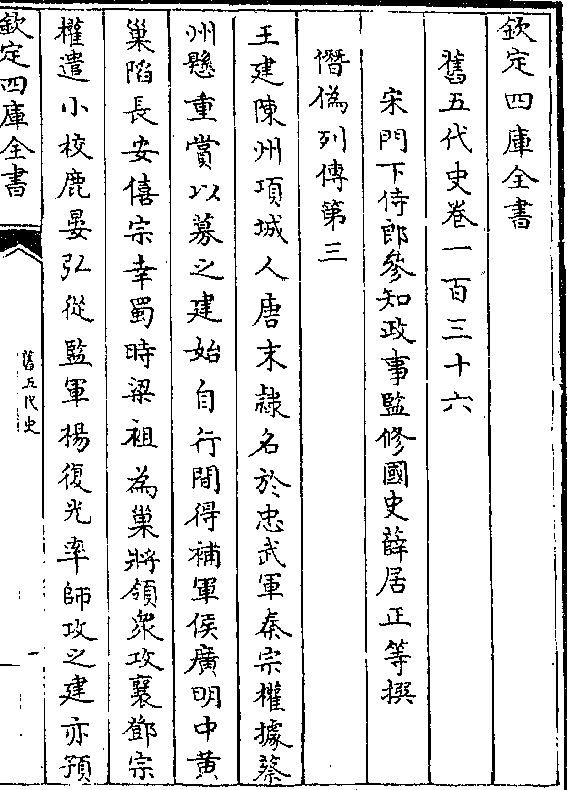 欽定四庫全書
舊五代史卷一百三十六
宋門下侍郎參知政事監修國史薛居正等撰
僭偽列傳第三
王建陳州項城人唐末隸名於忠武軍秦宗權據蔡
州懸重賞以募之建始自行間得補軍侯廣明中黄
巢陷長安僖宗幸蜀時梁祖為巢將領衆攻襄鄧宗
權遣小校鹿晏弘從監軍楊復光率師攻之建亦預
欽定四庫全書
舊五代史
一